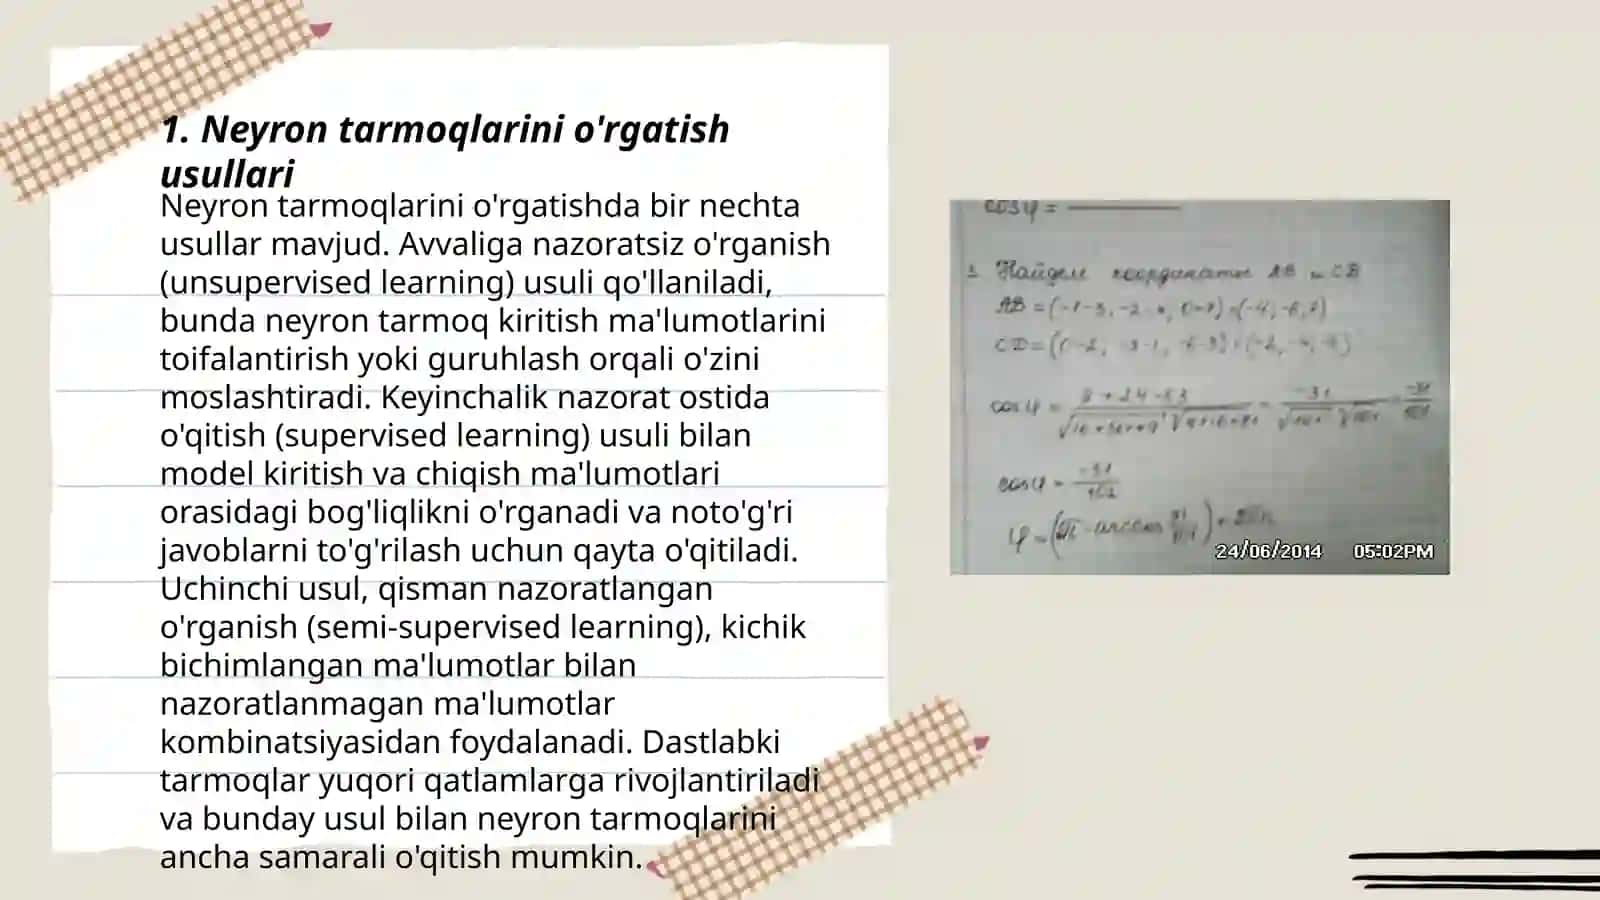 1. Neyron tarmoqlarini o'rgatish
usullari
Neyron tarmoqlarini o'rgatishda bir nechta
usullar mavjud. Avvaliga nazoratsiz o'rganish
(unsupervised learning) usuli qo'llaniladi,
bunda neyron tarmoq kiritish ma'lumotlarini
toifalantirish yoki guruhlash orqali o'zini
moslashtiradi. Keyinchalik nazorat ostida
o'qitish (supervised learning) usuli bilan
model kiritish va chiqish ma'lumotlari
orasidagi bog'liqlikni o'rganadi va noto'g'ri
javoblarni to'g'rilash uchun qayta o'qitiladi.
Uchinchi usul, qisman nazoratlangan
o'rganish (semi-supervised learning), kichik
bichimlangan ma'lumotlar bilan
nazoratlanmagan ma'lumotlar
kombinatsiyasidan foydalanadi. Dastlabki
tarmoqlar yuqori qatlamlarga rivojlantiriladi
va bunday usul bilan neyron tarmoqlarini
ancha samarali o'qitish mumkin.
cos φ =
3. Найдем координаты AB и CD
AB =
CD =
cos φ =
cos φ =
φ =
24/06/2014 05:02PM